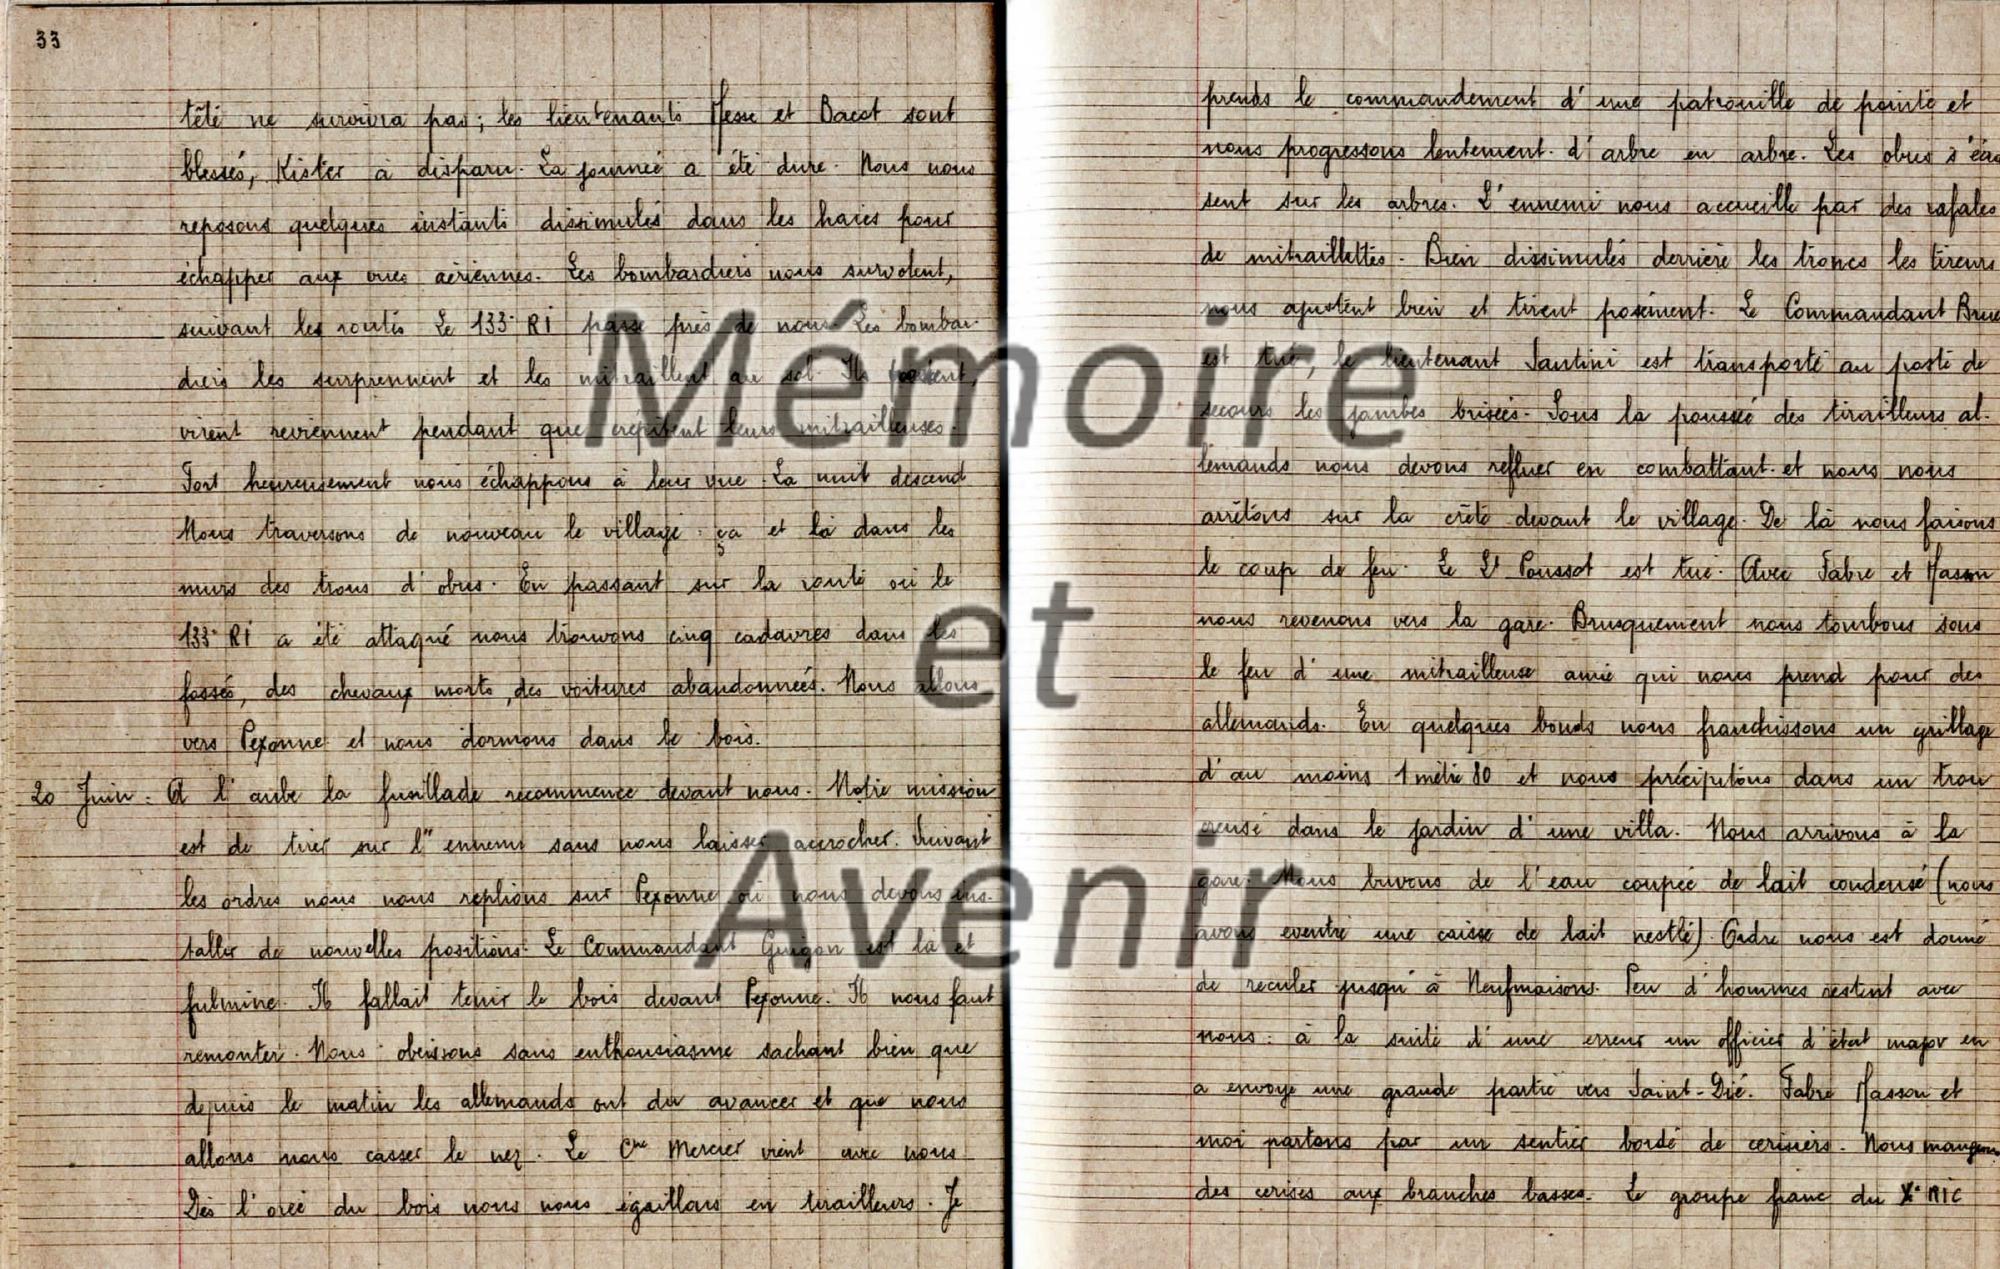 33
tête ne survivra pas ; les lieutenants Hesse et Bacot sont
blessés, Kister à disparu. La journée a été dure. Nous nous
reposons quelques instants dissimulés dans les haies pour
échapper aux vues aériennes. Les bombardiers nous survolent,
suivant les routes Le 133° RI passe près de nous. Les bombar-
diers les surprennent et les mitraillent au sol. Ils
virent reviennent pendant que crépitent leurs mitrailleuses.
Fort heureusement nous échappons à leur vue. La nuit descend
Nous traversons de nouveau le village : ça et là dans les
murs des trous d'obus. En passant sur la route où le
133° RI a été attaqué nous trouvons cinq cadavres dans les
fossés, des chevaux morts, des voitures abandonnées. Nous allons
vers Pexonne et nous dormons dans le bois.
20 Juin : A l'aube la fusillade recommence devant nous. Notre mission
est de tirer sur l'' ennemi sans nous laisser accrocher. Suivant
les ordres nous nous replions sur Pexonne où nous devons ins-
taller de nouvelles positions. Le Commandant Guigon est là et
fulmine. Il fallait tenir le bois devant Pexonne. Il nous faut
remonter. Nous obeissons sans enthousiasme sachant bien que
depuis le matin les allemands ont du avancer et que nous
allons nous casser le nez. Le Cne Mercier vient avec nous
Dès l'orée du bois nous nous égaillons en tirailleurs. Je
prends le commandement d'une patrouille de pointe et
nous progressons lentement d'arbre en arbre. Les obus s'écra
sent sur les arbres. L'ennemi nous accueille par des rafales
de mitraillettes. Bien dissimulés derrière les troncs les tireurs
nous ajustent bien et tirent posément. Le Commandant
est tué, le lieutenant Santini est transporté au poste de
secours les jambes brisées. Sous la poussée des tirailleurs al-
lemands nous devons refluer en combattant et nous nous
arrêtons sur la crête devant le village. De là nous faisons
le coup de feu. Le Lt Poussot est tué. Avec Fabre et Masson
nous revenons vers la gare. Brusquement nous tombons sous
le feu d'une mitrailleuse amie qui nous prend pour des
allemands. En quelques bonds nous franchissons un grillage
d'au moins 1 mètre 80 et nous précipitons dans un trou
creusé dans le jardin d'une villa. Nous arrivons à la
gare. Nous buvons de l'eau coupée de lait condensé (nous
avons eventré une caisse de lait nestlé) Ordre nous est donné
de reculer jusqu'à Neufmaisons. Peu d'hommes restent avec
nous : à la suite d'une erreur un officier d'état major en
a envoyé une grande partie vers Saint-Dié. Fabre Masson et
moi partons par un sentier bordé de cerisiers. Nous mangeons
des cerises aux branches basses. Le groupe franc du RIC
Mémoire
et
Avenir